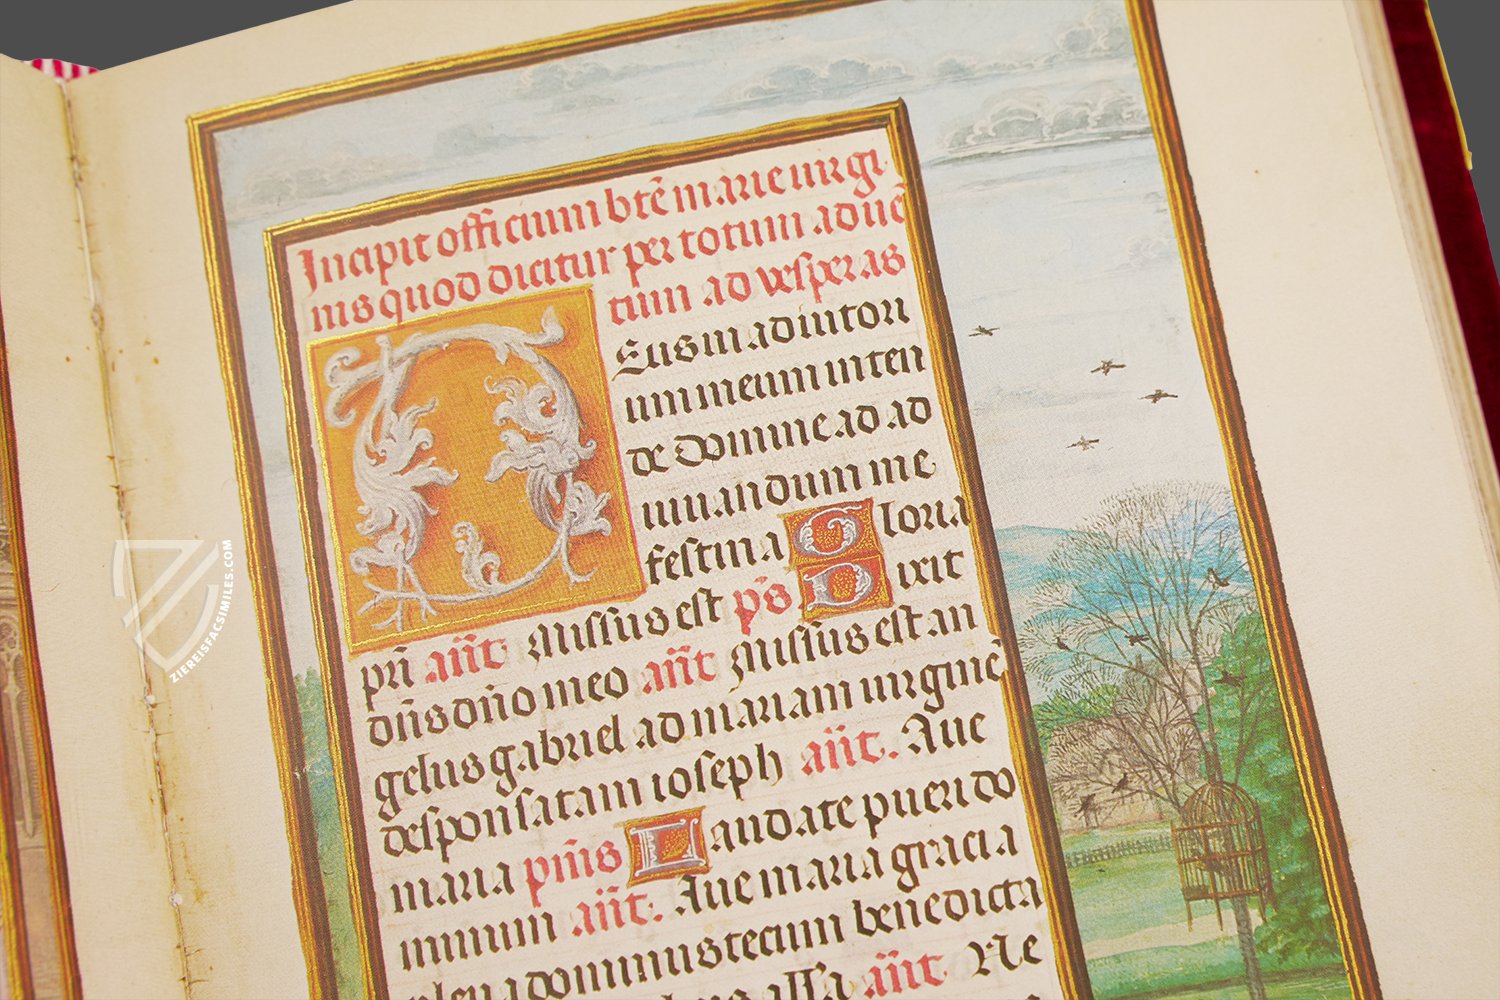 Incipit officium bte marie virgi
nis quod dicitur per totum aduē
tum ad vesperas
Eus in adiutori
um meum inten
de domine ad ad
iuuandum me
festina Gloria
pri añt Missus est ps Dixit
dñs dño meo añt Missus est an
gelus gabriel ad mariam uirginē
desponsatam ioseph añt. Aue
maria pmis Laudate pueri do
minum añt. Aue maria gracia
plena dominus tecum benedicta
añt Ne
ZIEREISFACSIMILES.COM